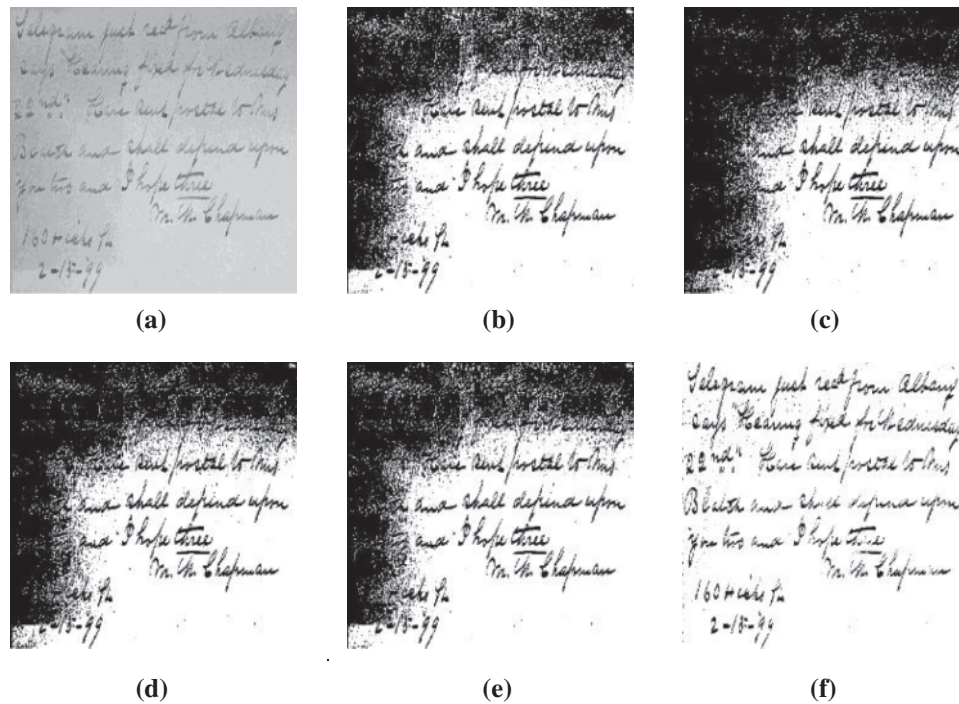 Telegram just rec'd from Albany
says Hearing fixed for Wednesday
22nd. Have sent postal to Mrs
Blatch and shall depend upon
you two and I hope three
M. W. Chapman
160 Hicks St.
2-15-99
(a)
for Wednesday
Have sent postal to Mrs
and shall depend upon
and I hope three
M. W. Chapman
Hicks St.
2-15-99
(b)
sent postal to Mrs
and shall depend upon
and I hope three
M. W. Chapman
St.
-15-99
(c)
Have sent postal to Mrs
and shall depend upon
and I hope three
M. W. Chapman
St.
-15-99
(d)
Have sent postal to Mrs
and shall depend upon
and I hope three
M. W. Chapman
St.
-15-99
(e)
Telegram just rec'd from Albany
says Hearing fixed for Wednesday
22nd. Have sent postal to Mrs
Blatch and shall depend upon
you two and I hope three
M. W. Chapman
160 Hicks St.
2-15-99
(f)